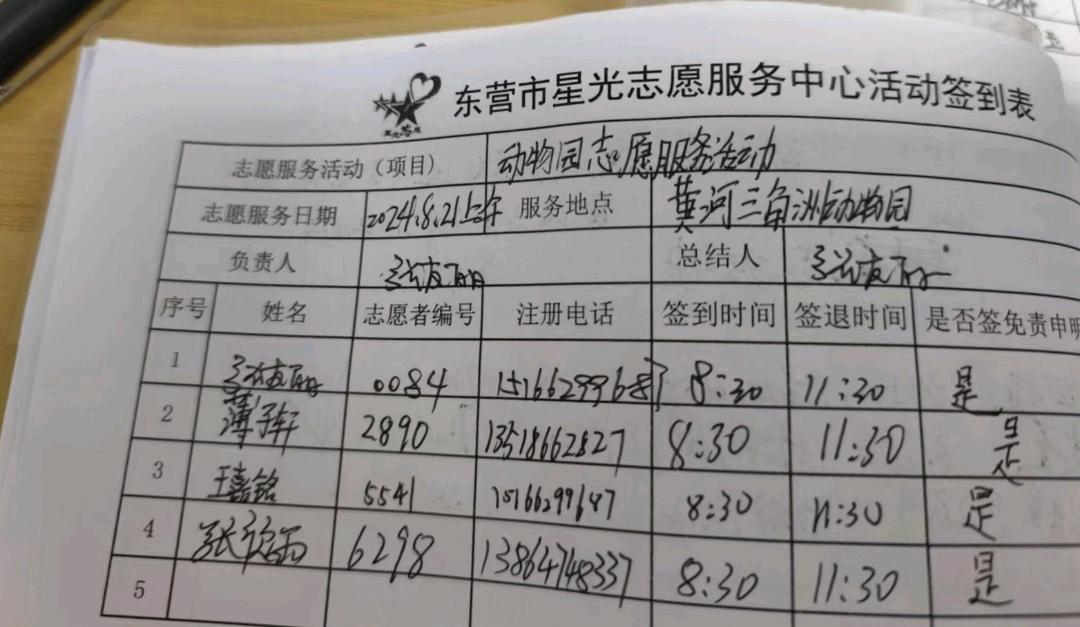 东营市星光志愿服务中心活动签到表
志愿服务活动（项目） 动物园志愿服务活动
志愿服务日期 2024.8.21上午 服务地点 黄河三角洲动物园
负责人 总结人
序号 姓名 志愿者编号 注册电话 签到时间 签退时间 是否签免责申明
1 0084 8:30 11:30 是
2 薄子轩 2890 13518662827 8:30 11:30 是
3 王嘉铭 5541 8:30 11:30 是
4 张 6298 13864748337 8:30 11:30 是
5